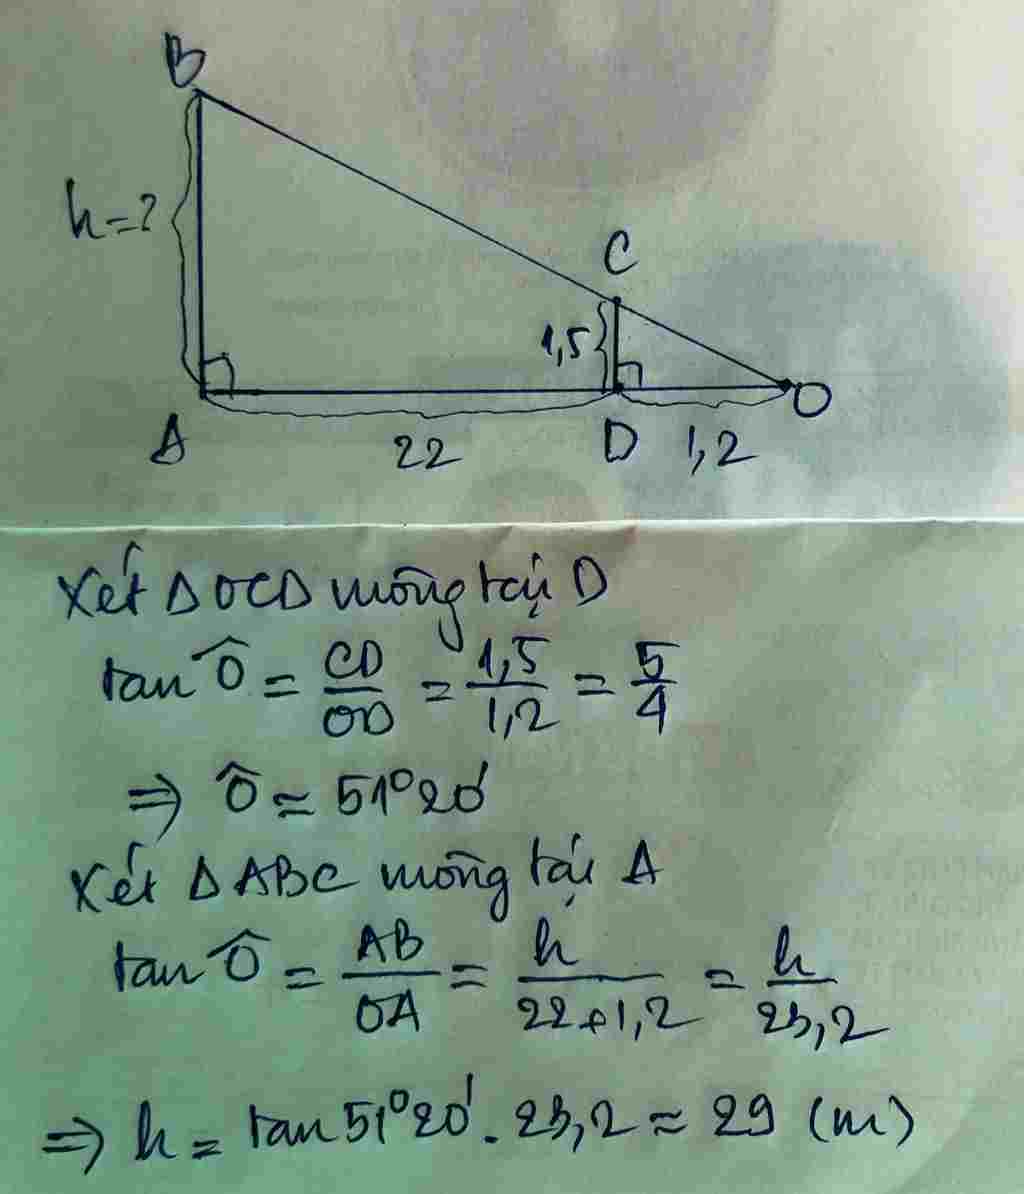 B
h=?
C
1,5
A
22
D
1,2
O
Xét Δ OCD vuông tại D
tan Ô = CD/OD = 1,5/1,2 = 5/4
⇒ Ô ≈ 51°20'
Xét Δ ABC vuông tại A
tan Ô = AB/OA = h/22+1,2 = h/23,2
⇒ h = tan 51°20' . 23,2 ≈ 29 (m)